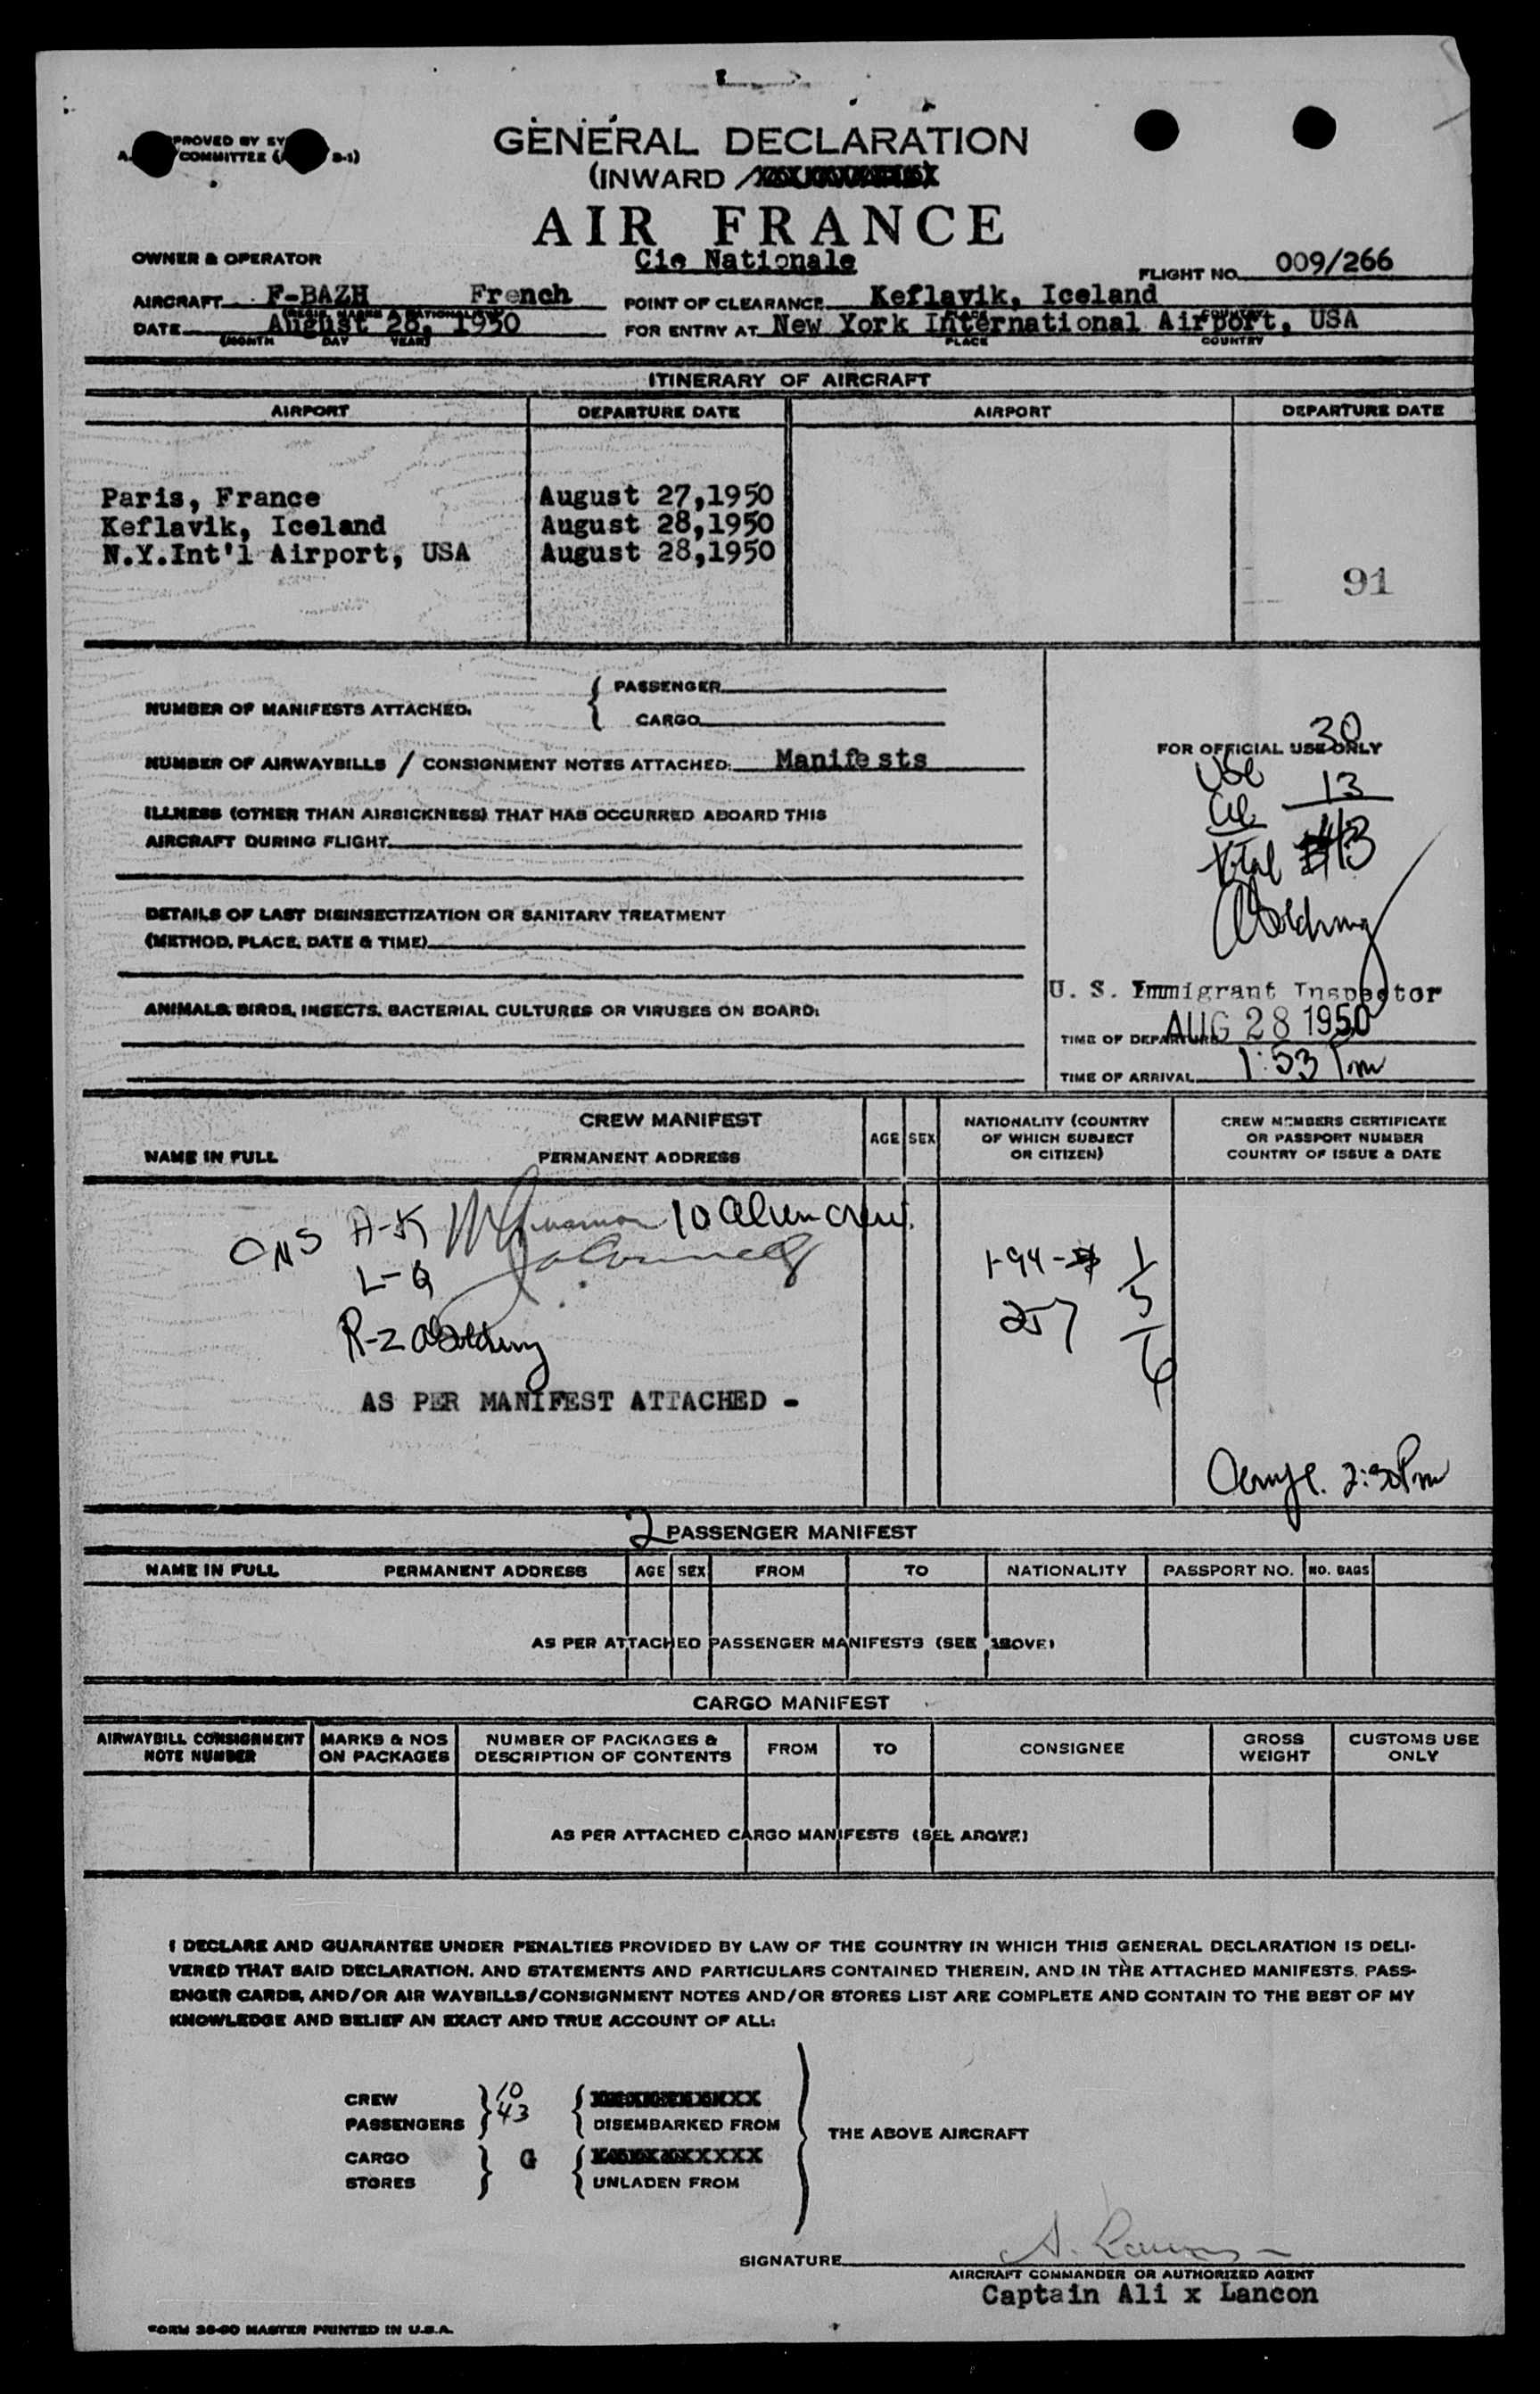 GENERAL DECLARATION
(INWARD /
AIR FRANCE
OWNER & OPERATOR Cie Nationale FLIGHT NO. 009/266
AIRCRAFT F-BAZH French POINT OF CLEARANCE Keflavik, Iceland
DATE August 28, 1950 FOR ENTRY AT New York International Airport, USA
(MONTH DAY YEAR) PLACE COUNTRY
ITINERARY OF AIRCRAFT
AIRPORT DEPARTURE DATE AIRPORT DEPARTURE DATE
Paris, France August 27,1950
Keflavik, Iceland August 28,1950
N.Y.Int'l Airport, USA August 28,1950
91
NUMBER OF MANIFESTS ATTACHED. { PASSENGER
CARGO
NUMBER OF AIRWAYBILLS / CONSIGNMENT NOTES ATTACHED: Manifests
ILLNESS (OTHER THAN AIRSICKNESS) THAT HAS OCCURRED ABOARD THIS
AIRCRAFT DURING FLIGHT
DETAILS OF LAST DISINSECTIZATION OR SANITARY TREATMENT
(METHOD, PLACE, DATE & TIME)
ANIMALS, BIRDS, INSECTS, BACTERIAL CULTURES OR VIRUSES ON BOARD:
FOR OFFICIAL USE ONLY
USC 30
13
Total 43
U. S. Immigrant Inspector
TIME OF DEPARTURE AUG 28 1950
TIME OF ARRIVAL 1:53 Pm
CREW MANIFEST
NAME IN FULL PERMANENT ADDRESS AGE SEX NATIONALITY (COUNTRY OF WHICH SUBJECT OR CITIZEN) CREW MEMBERS CERTIFICATE OR PASSPORT NUMBER COUNTRY OF ISSUE & DATE
A-K 10 alien crew.
L-Q
R-Z
I-94- 1
257 5
6
AS PER MANIFEST ATTACHED -
2:30 Pm
2 PASSENGER MANIFEST
NAME IN FULL PERMANENT ADDRESS AGE SEX FROM TO NATIONALITY PASSPORT NO. NO. BAGS
AS PER ATTACHED PASSENGER MANIFESTS (SEE ABOVE)
CARGO MANIFEST
AIRWAYBILL CONSIGNMENT NOTE NUMBER MARKS & NOS ON PACKAGES NUMBER OF PACKAGES & DESCRIPTION OF CONTENTS FROM TO CONSIGNEE GROSS WEIGHT CUSTOMS USE ONLY
AS PER ATTACHED CARGO MANIFESTS (SEE ABOVE)
I DECLARE AND GUARANTEE UNDER PENALTIES PROVIDED BY LAW OF THE COUNTRY IN WHICH THIS GENERAL DECLARATION IS DELI-
VERED THAT SAID DECLARATION, AND STATEMENTS AND PARTICULARS CONTAINED THEREIN, AND IN THE ATTACHED MANIFESTS, PASS-
ENGER CARDS, AND/OR AIR WAYBILLS/CONSIGNMENT NOTES AND/OR STORES LIST ARE COMPLETE AND CONTAIN TO THE BEST OF MY
KNOWLEDGE AND BELIEF AN EXACT AND TRUE ACCOUNT OF ALL:
CREW 10
PASSENGERS 43 DISEMBARKED FROM
THE ABOVE AIRCRAFT
CARGO G
STORES UNLADEN FROM
SIGNATURE
AIRCRAFT COMMANDER OR AUTHORIZED AGENT
Captain Ali x Lancon
FORM 36-60 MASTER PRINTED IN U.S.A.